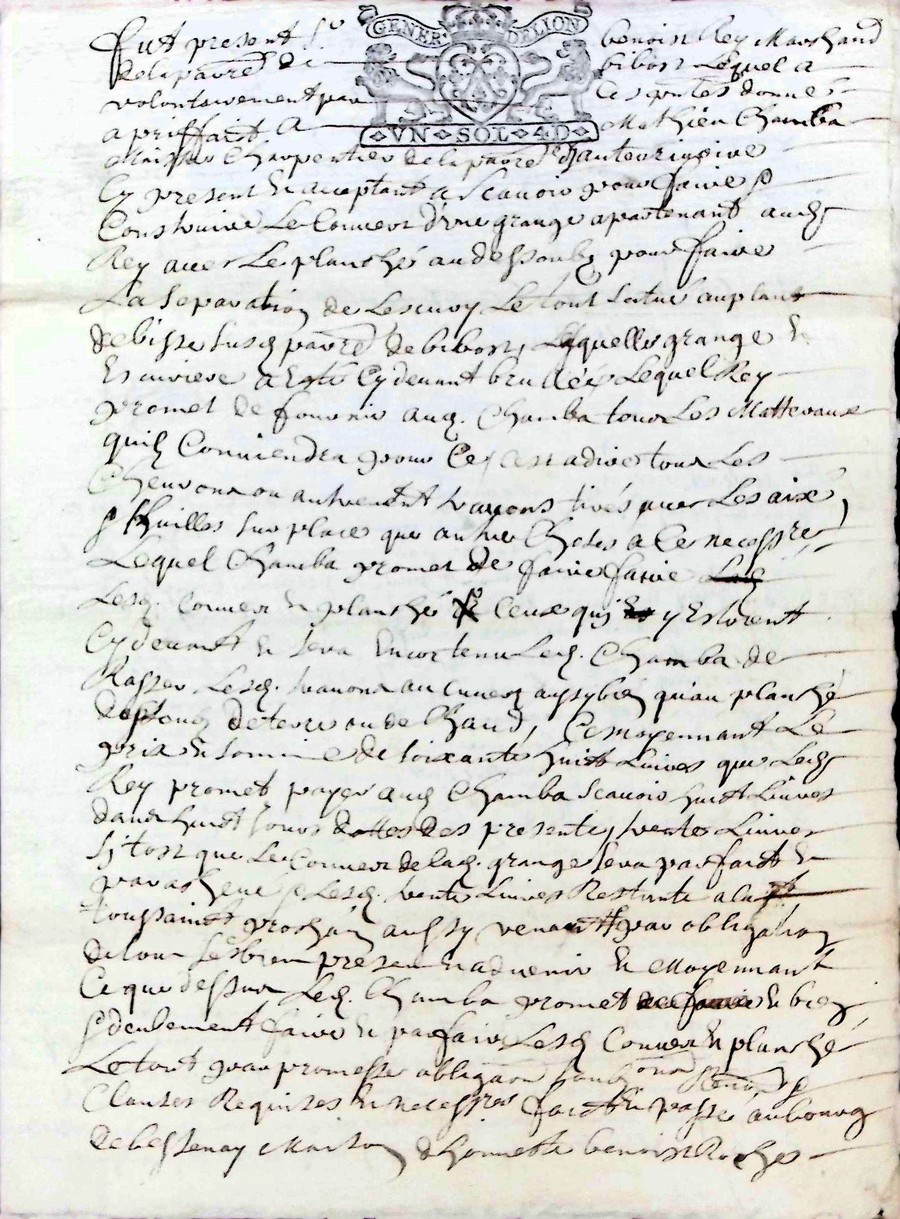 GENER DELION
VN SOL 4D
fut present Sr benoist Rey Marchand
de la parre de bibost Lequel a
volontairement par Ces pntes donné
a priffaict A Mathieu Chamba
Maistre Charpentier de la parre d'hauterivoire
Cy present & acceptant a Scavoir pour faire &
Construire Le Couvert d'une grange apartenant audt
Rey avec Le planché au dessoubz pour faire
La Separation de Lescury Le tout Scitué au plant
de bisse Susd parre de bibost, Laquelle grange &
Escurierie a Esté Cy devant brullée, Lequel Rey
promet de fournir aud. Chamba tous Les Matteraux
quil Conviendra pour Ce, cest a dire tous Les
Chevrons ou autrement travons tirés avec Les aix
& thuilles sur place que autres Choses a Ce necessres,
Lequel Chamba promet de faire faire
Lesd. Couvert & planché Ceux quj y Estoient
Cy devant & sera Encor tenu Led. Chamba de
Passer Lesd. travons au Couvert aussy bien qu'au planché
dessoubz de terre ou de Chaud, Ce moyennant Le
prix & somme de soixante huict Livres que Ledt
Rey promet payer aud Chamba Scavoir huict Livres
dans huict jours des presentes, trente Livres
Sj tost que Le Couvert de lad. grange sera parfaict &
parachevé & Lesd. trente Livres Restante a la
toussainct prochain aussy venant par obligation
de tous Ses biens presens & advenir & Moyennant
Ce que dessus Led. Chamba promet & bien
& deubement faire & parfaire Lesd Couvert & planché
Le tout par promesse obligaon soubzon Renonon &
Clauses Requises & necessres faict & passé au bourg
de bessenay Maison d'honneste benoist Roches